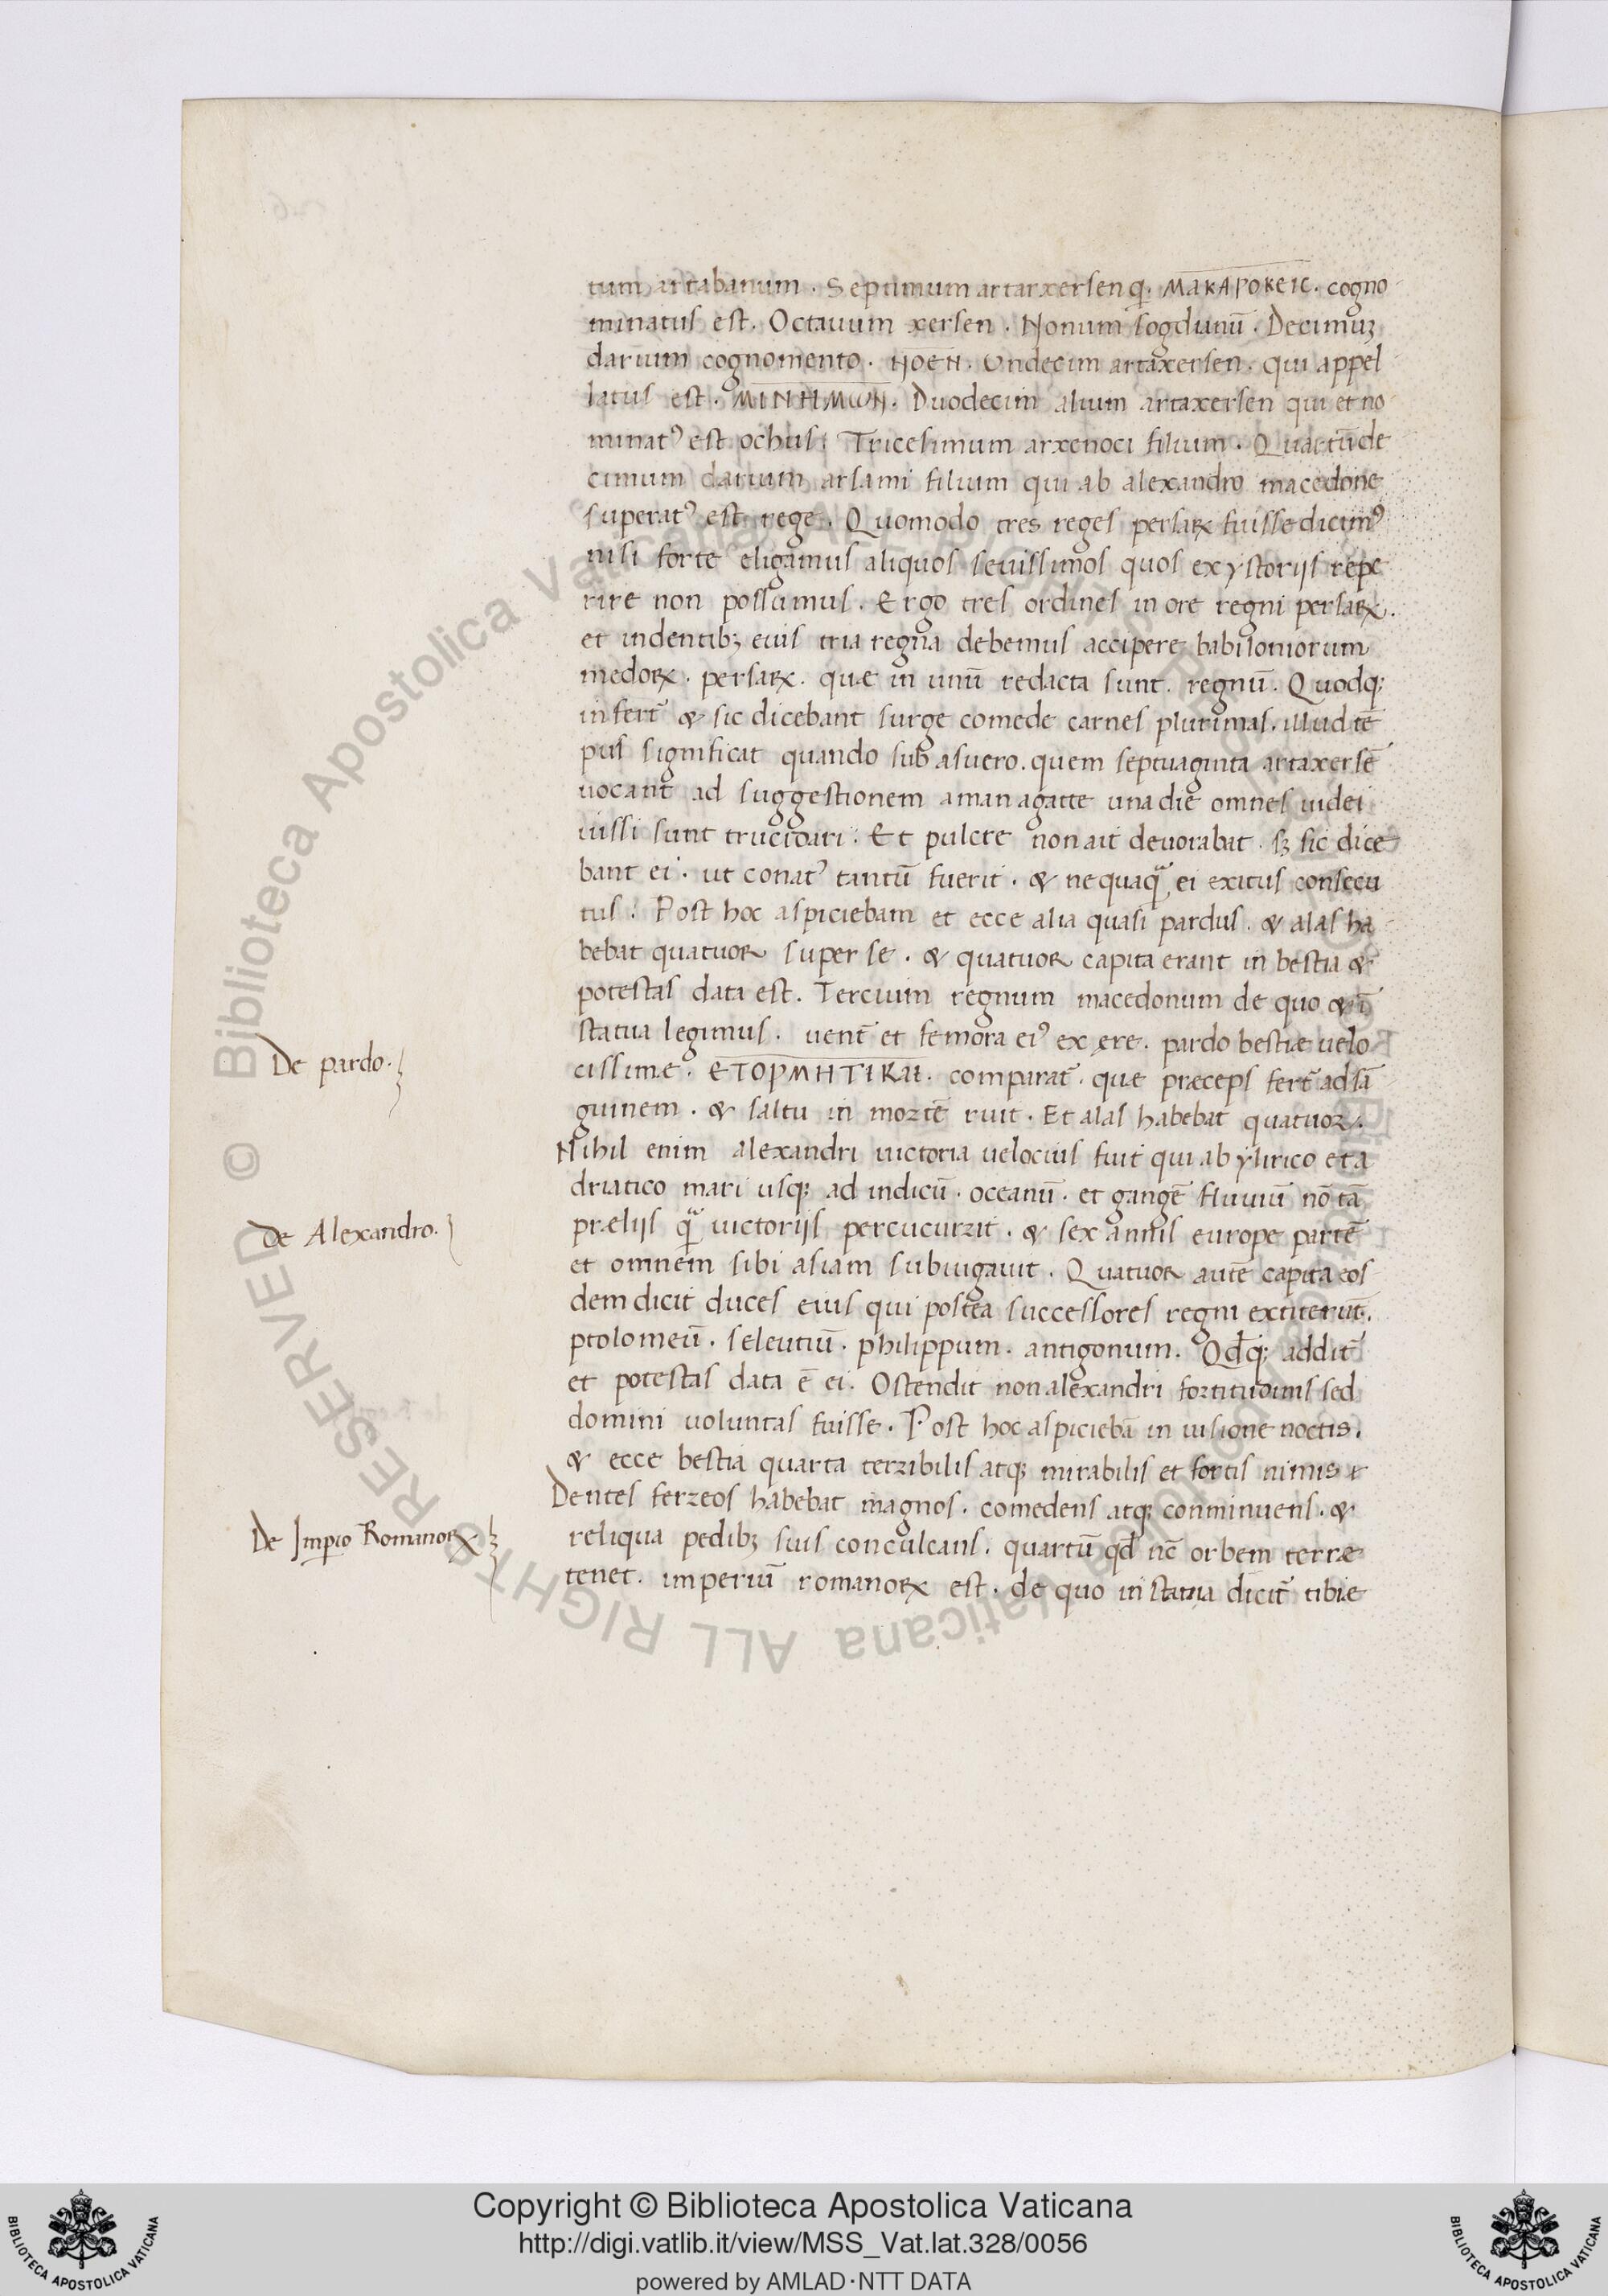 tum artabanum. Septimum artarxersen q̄. ΜΑΚΑΡΟΚΕΙC. cogno
minatus est. Octauum xersen. Nonum sogdianū. Decimuꝫ
darium cognomento. NOEN. Undecim artaxersen. qui appel
latus est. MINHMωN. Duodecim alium artaxersen qui et no
minatꝰ est ochus. Tricesimum arxenoci filium. Quartūde
cimum darium arsami filium qui ab alexandro macedone
superatꝰ est rege. Quomodo tres reges persaꝝ fuisse dicimꝰ
nisi forte eligamus aliquos seuissimos quos ex ystorijs repe
rire non possumus. Ergo tres ordines in ore regni persaꝝ.
et in dentibꝫ euis tria regna debemus accipere babiloniorum
medoꝝ. persaꝝ. quæ in unū redacta sunt. regnū. Quodqꝫ
infert̄ & sic dicebant surge comede carnes plurimas. illud tē
pus significat quando sub asuero. quem septuaginta artaxersē
uocant ad suggestionem aman agatte una die omnes iudei
iussi sunt trucidari. Et pulcre non ait deuorabat. sꝫ sic dice
bant ei. ut conatꝰ tantū fuerit. & nequaq̄ ei exitus consecu
tus. Post hoc aspiciebam et ecce alia quasi pardus. & alas ha
bebat quatuor super se. & quatuor capita erant in bestia &
potestas data est. Tercium regnum macedonum de quo & ī
statua legimus. uent̄ et femora eiꝰ ex ere. pardo bestiæ uelo
cissimæ. ETOPMHTIKAI. comparat̄. que præceps fert̄ ad sā
guinem. & saltu in mortē ruit. Et alas habebat quatuor.
Nihil enim alexandri uictoria uelocius fuit qui ab ylirico et a
driatico mari usqꝫ ad indicū. oceanū. et gangē fluuiū nō tā
prælijs q̄ uictorijs percucurrit. & sex annis europe partē
et omnem sibi asiam subiugauit. Quatuor autē capita eos
dem dicit duces eius qui postea successores regni extiterūt.
ptolomeū. seleutiū. philippum. antigonum. Qđqꝫ addit̄
et potestas data ē ei. Ostendit non alexandri fortitudinis sed
domini uoluntas fuisse. Post hoc aspiciebā in uisione noctis.
& ecce bestia quarta terribilis atqꝫ mirabilis et fortis nimis
Dentes ferreos habebat magnos. comedens atqꝫ conminuens. &
reliqua pedibꝫ suis conculcans. quartū qđ nc̄ orbem terræ
tenet. imperiū romanoꝝ est. de quo in statua dicit̄ tibiæ
De pardo.
De Alexandro.
De Imꝑio Romanoꝝ
© Biblioteca Apostolica Vaticana ALL RIGHTS RESERVED
Copyright © Biblioteca Apostolica Vaticana
http://digi.vatlib.it/view/MSS_Vat.lat.328/0056
powered by AMLAD·NTT DATA
BIBLIOTECA APOSTOLICA VATICANA
BIBLIOTECA APOSTOLICA VATICANA